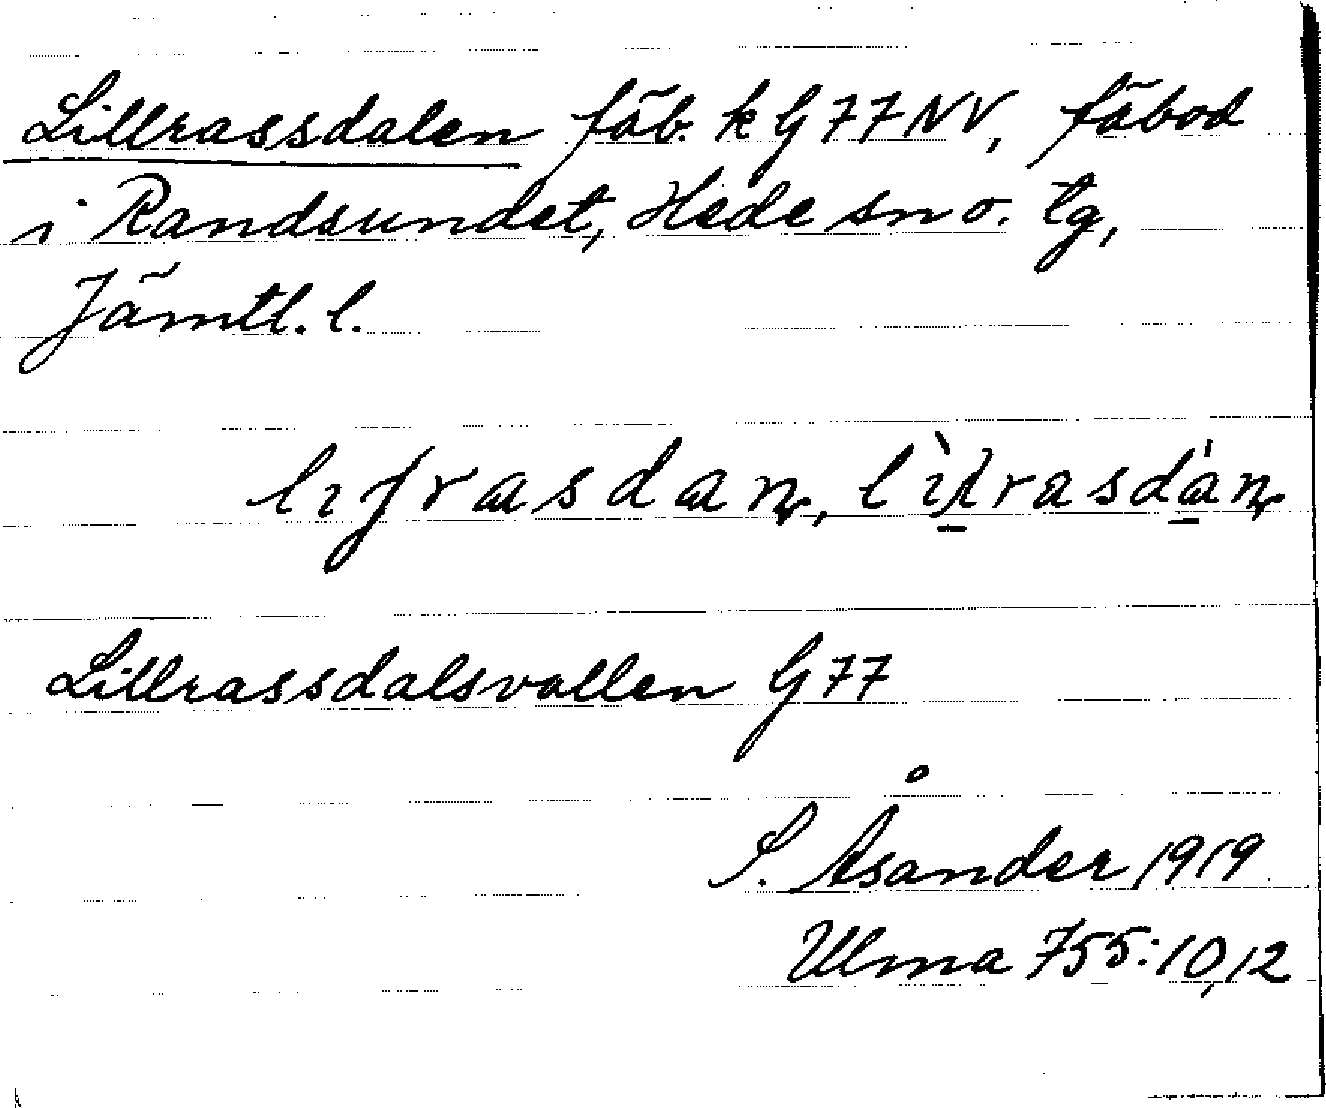 Lillrassdalen fäb. k G77NV, fäbod
i Randsundet, Hede sn o. tg,
Jämtl. l.
Lillrassdalsvallen G77
S. Åsander 1919
Ulma 755:10,12